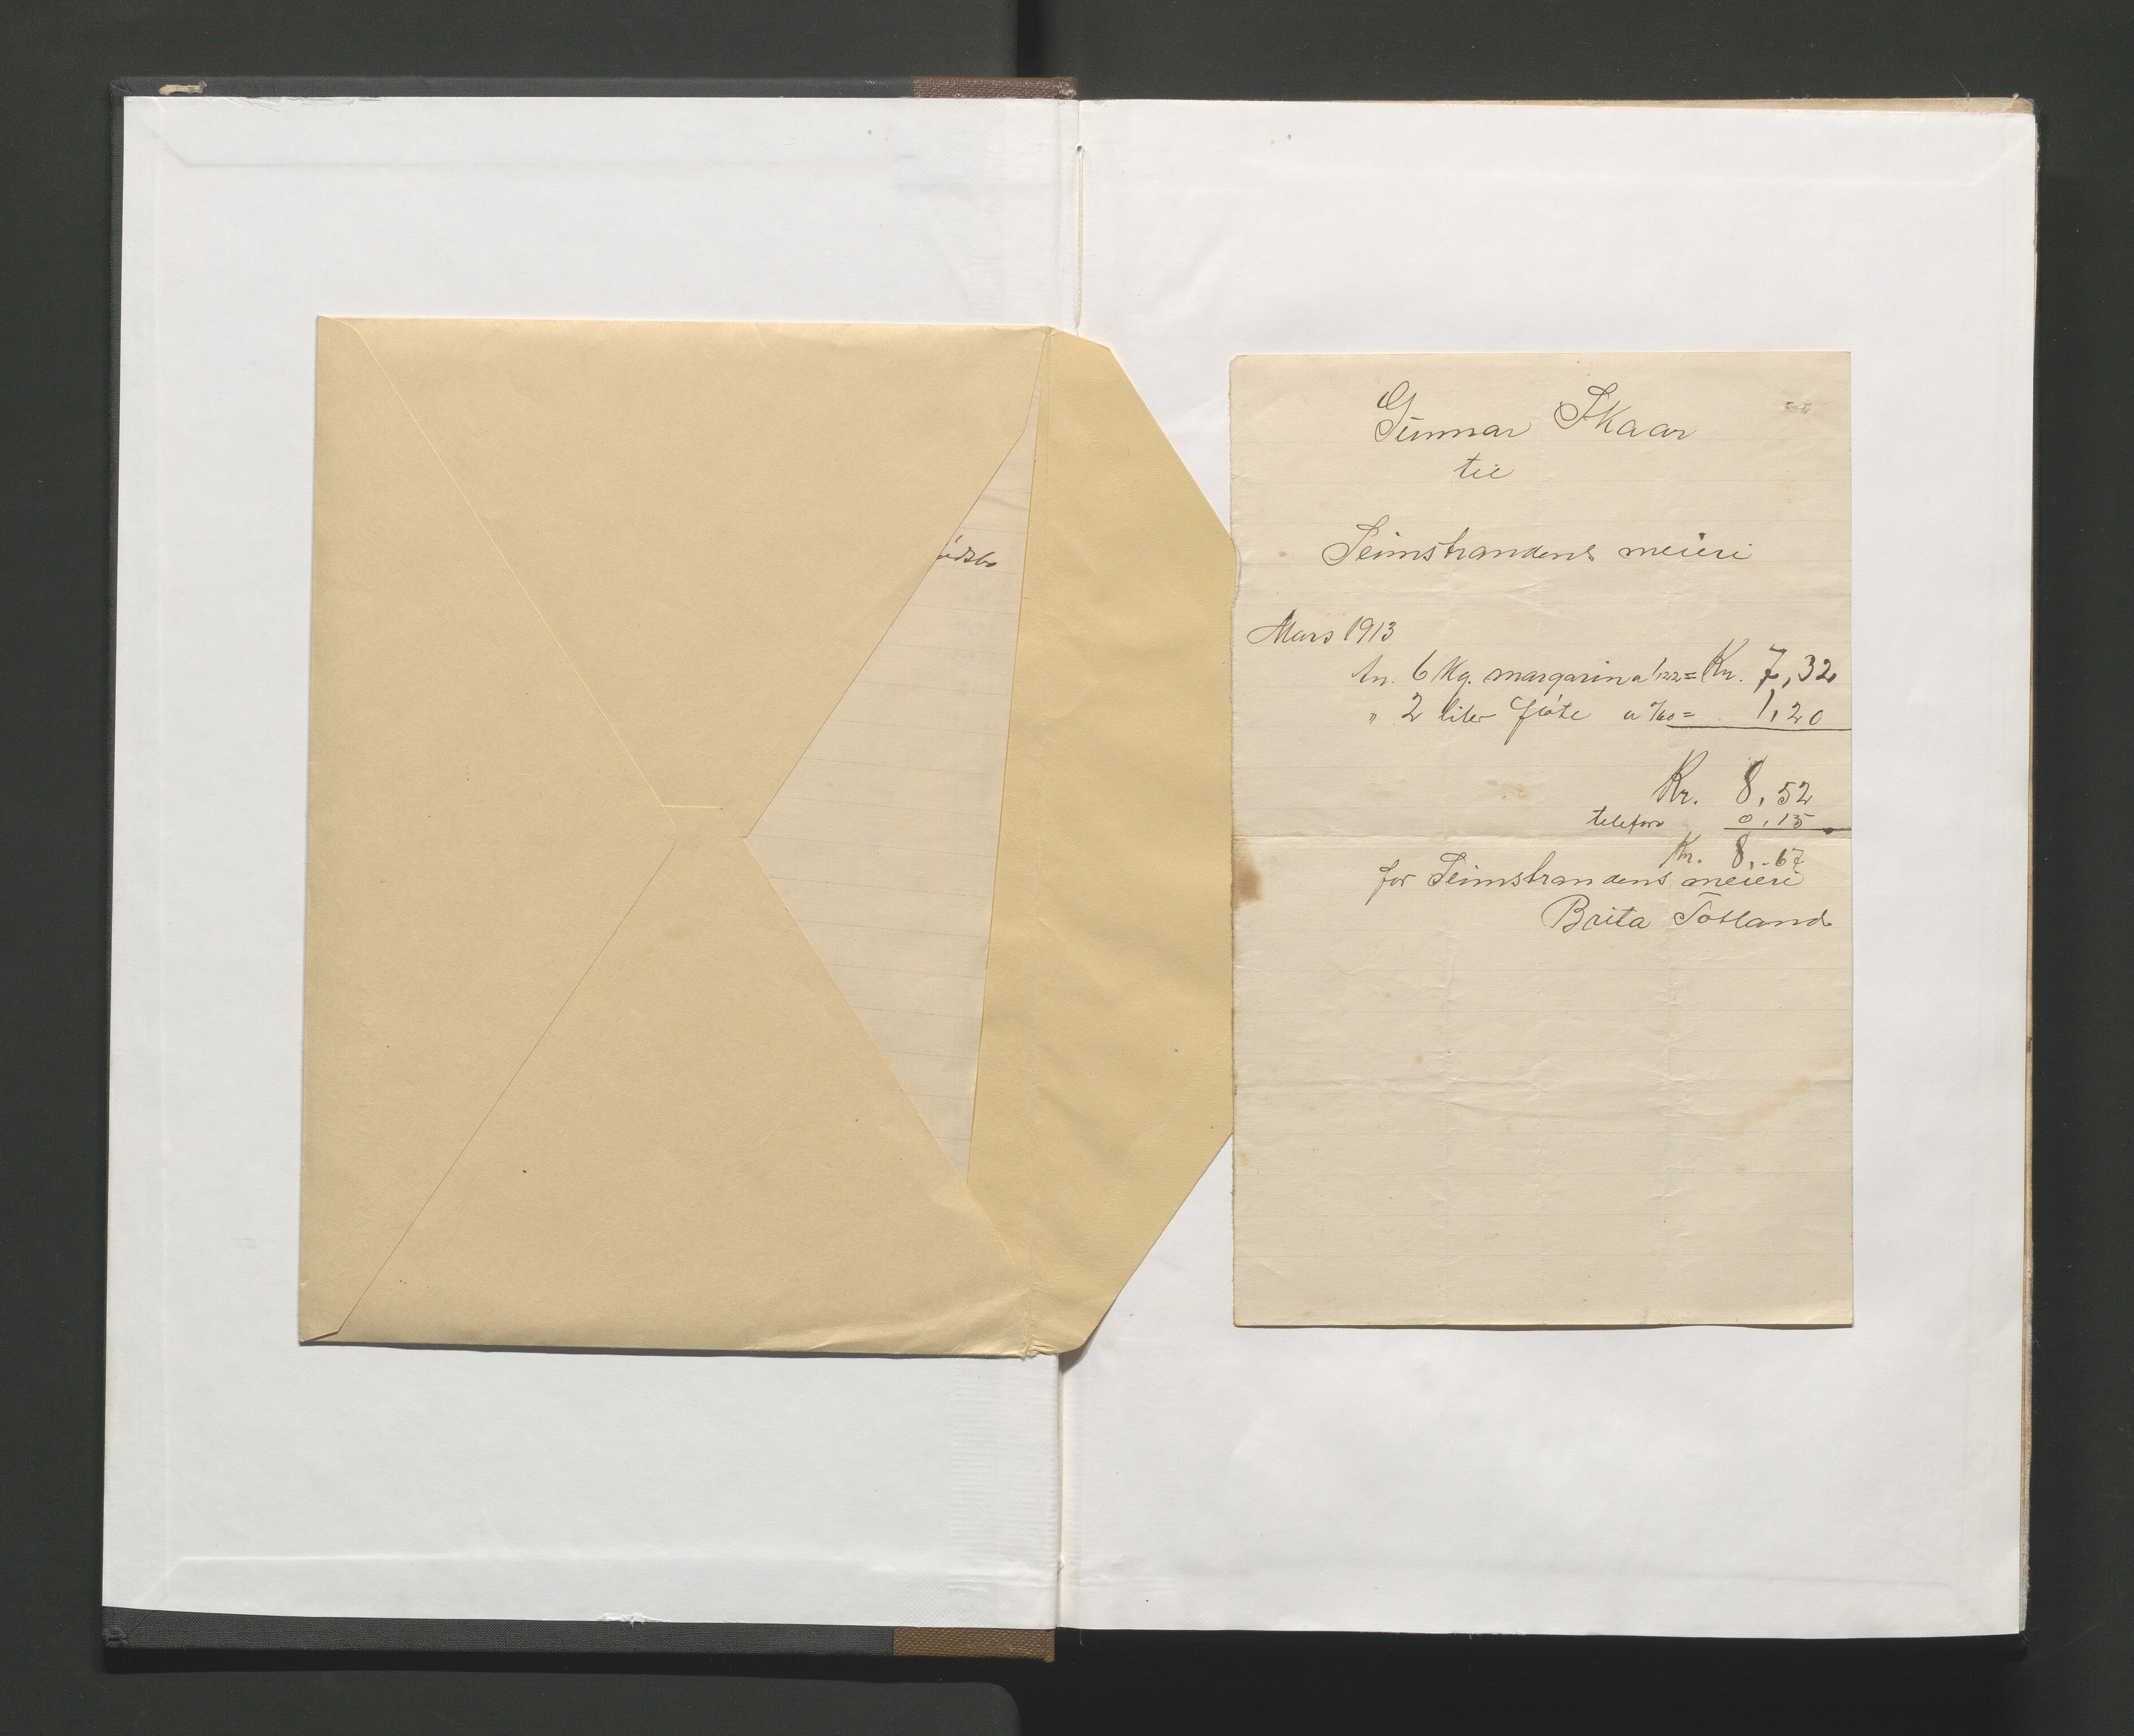 Gunnar Skaar
til
Seimstrandens meieri
Mars 1913
An. 6 Kg. margarin a 1,22 = Kr. 7,32
" 2 liter fløte a %60 = 1,20
Kr. 8,52
telefon 0,15
Kr. 8,-67
for Seimstrandens meieri
Brita Totland